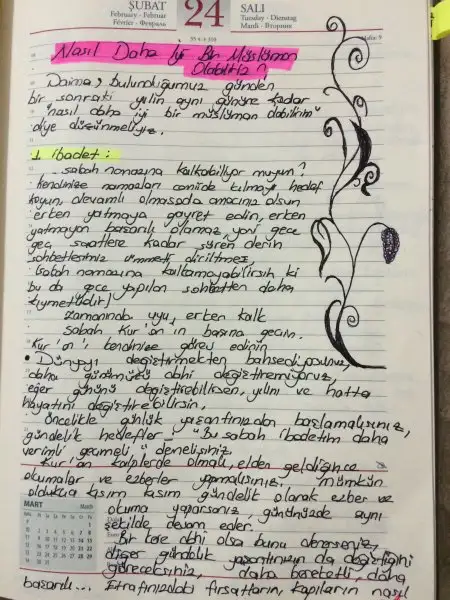 ŞUBAT
February · Februar
Février · Февраль
24
SALI
Tuesday · Dienstag
Mardi · Вторник
55 + 310
Hafta: 9
Nasıl Daha İyi Bir Müslüman
Olabiliriz?
Daima, bulunduğumuz günden
bir sonraki yılın aynı gününe kadar
"nasıl daha iyi bir müslüman olabilirim"
diye düşünmeliyiz.
1. ibadet:
sabah namazına kalkabiliyor muyum?
Kendinize namazları camide kılmayı hedef
koyun, devamlı olmasada amacınız olsun
erken yatmaya gayret edin, erken
yatmayan başarılı olamaz, yani gece
geç saatlere kadar süren derin
sohbetleriniz ümmeti diriltmez,
(sabah namazına kalkamayabilirsin ki
bu da gece yapılan sohbetten daha
kıymetlidir)
zamanında uyu, erken kalk
sabah Kur'ân'ın başına geçin.
Kur'ân'ı kendinize görev edinin
• Dünyayı değiştirmekten bahsediyorsunuz,
daha günümüzü dahi değiştiremiyoruz,
eğer gününü değiştirebilirsen, yılını ve hatta
hayatını değiştirebilirsin.
Öncelikle günlük yaşantınızdan başlamalısınız,
gündelik hedefler - "Bu sabah ibadetim daha
verimli geçmeli" demelisiniz.
Kur'ân kalplerde olmalı, elden geldiğince
okumalar ve ezberler yapmalısınız. mümkün
oldukça kısım kısım gündelik olarak ezber ve
okuma yaparsanız, gününüzde aynı
şekilde devam eder.
Bir kere dahi olsa bunu denerseniz,
diğer gündelik yaşantınızın da değiştiğini
göreceksiniz, daha bereketli, daha
başarılı... Etrafınızdaki fırsatların, kapıların nasıl
MART
March